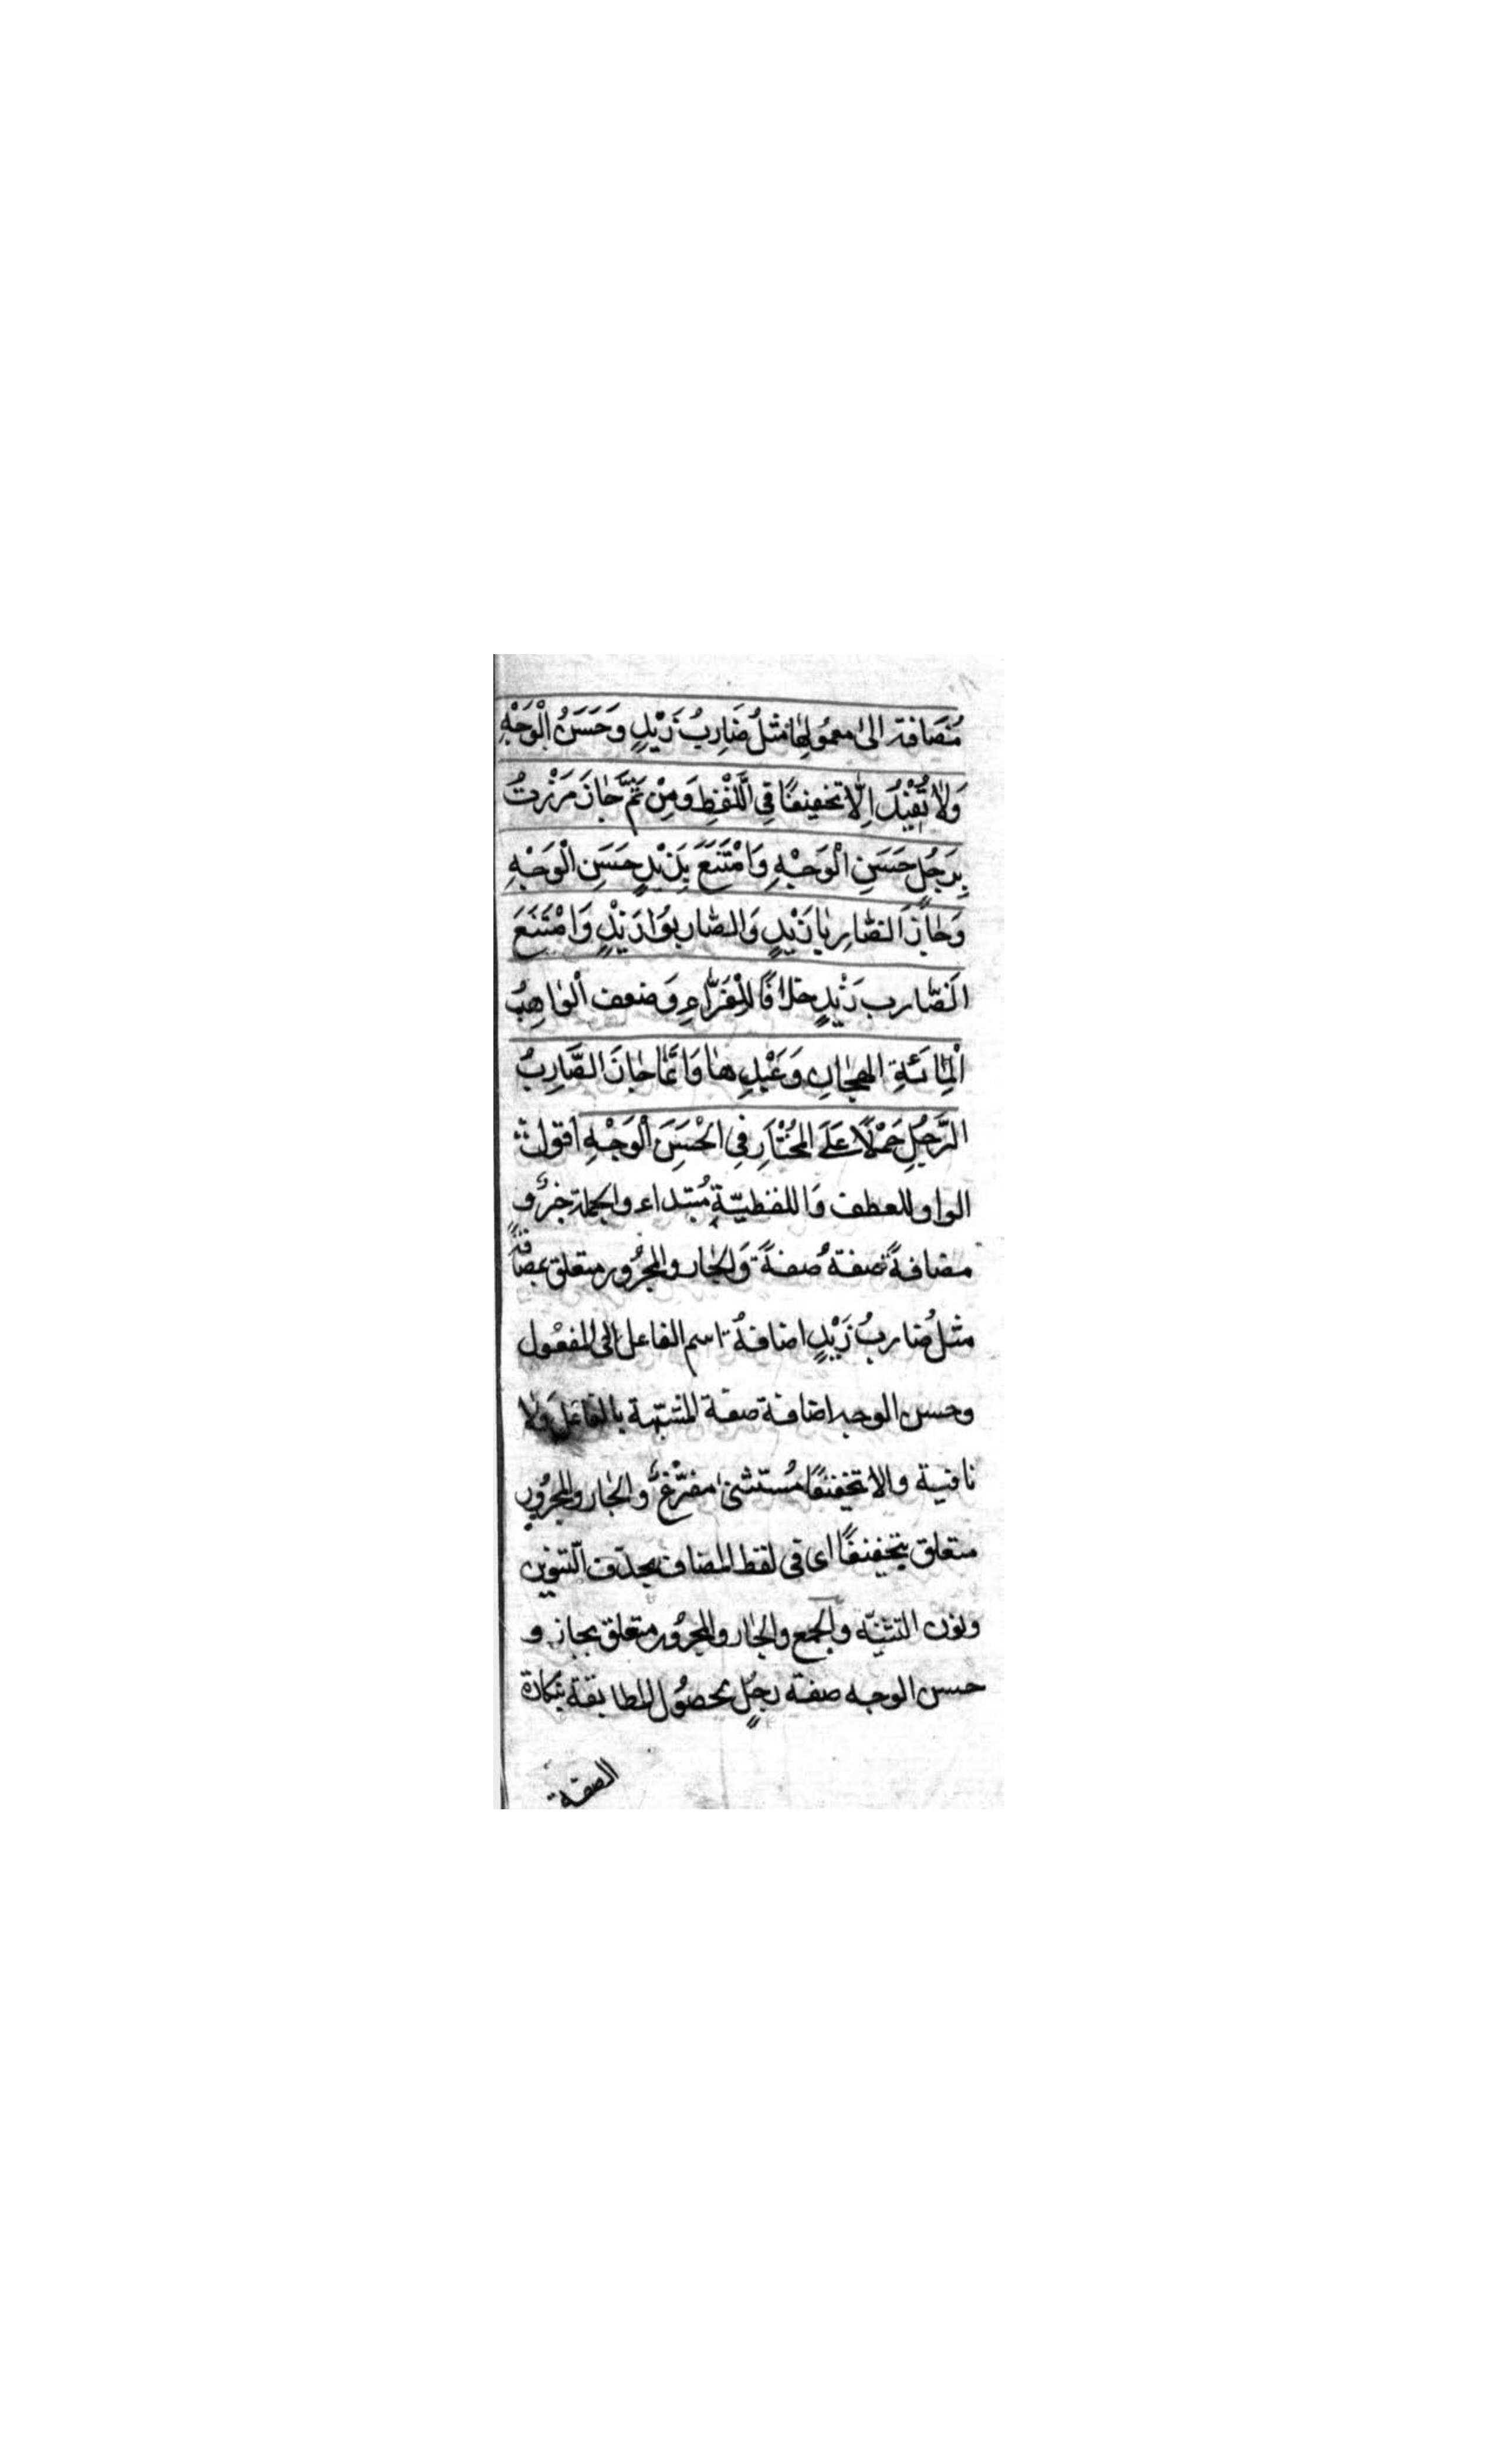 مُضَافة الىٰ معمُولِهٰا مثلُ ضَارِبُ زَيْدٍ وَحَسَنُ الْوَجْهِ
وَلاٰ تُفِيْدُ اِلّا تخفيفًا فِي الَّلفْظِ وَمِنْ ثَمَّ جَازَ مَرَرْتُ
بِرَجُلٍ حَسَنِ الْوَجْهِ وَامْتَنَعَ بِزَيْدٍ حَسَنِ الْوَجْهِ
وَجَازَ الضّارِبا زَيْدٍ وَالضّاربُوا زَيْدٍ وَامْتَنَعَ
الضّارب زَيْدٍ خلافًا لِلْفَرّاءِ وَضعف الْوٰاهِبُ
الْمِائَةِ الهِجٰانِ وَعَبْدِهٰا وَاِنَّمٰا جٰازَ الضَّارِبُ
الرَّجُلِ حَمْلًا عَلَى الْمُخْتٰارِ فِي الْحَسَنِ الْوَجْهِ اقول
الواو للعطف وَاللفظيّة مُبتداء والجملة خبرُ و
مضافةً صفة صفةً وَالجٰار والمجرُور متعلق بمضافةً
مثلُ ضاربُ زَيْدٍ اضافةُ اسم الفاعل الى المفعُول
وحسن الوجه اضافة صفة المشبّهة بالفاعل وَلا
نافية والا تخفيفًا مُستثنىٰ مفرّغُ والجٰار والمجرُور
متعلق بتخفيفًا اى فى لفظ المضاف بحذف التّنوين
ونون التثنيّه والجمع والجٰار والمجرُور متعلق بجاز و
حسن الوجه صفة رجُلٍ بحصُول المطابقة بنكارة
الصفة